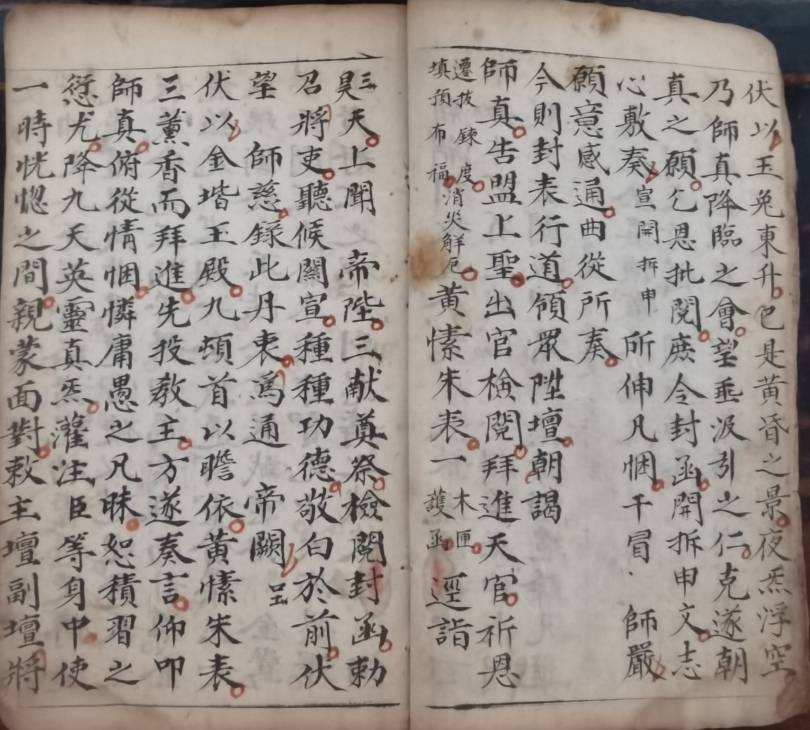 伏以玉兔東升㐵是黄昏之景夜炁浮空
乃師真降臨之會望垂汲引之仁克遂朝
真之願乞恩批閱庶今封函開拆申文志
心敷奏宣開拆申所伸凡悃干冒師嚴
願意感通曲從所奏
今則封表行道領眾陞壇朝謁
師真告盟上聖出官檢閱拜進天官祈恩
遷拔鍊度填預布福消災解厄黄愫朱表一木匣護函逕詣
三昊天上聞帝陛三献奠祭檢閱封函勅
召將吏聽候關宣種種功德敬白於前伏
望師慈錄此丹衷爲通帝闕呈
伏以金堦玉殿九頓首以瞻依黄愫朱表
三薰香而拜進先投教主方遂奏言仰叩
師真俯從情悃憐庸愚之凡昧恕積習之
愆尤降九天英靈真炁灌注臣等身中使
一時恍惚之間親蒙面對敕主壇副壇將